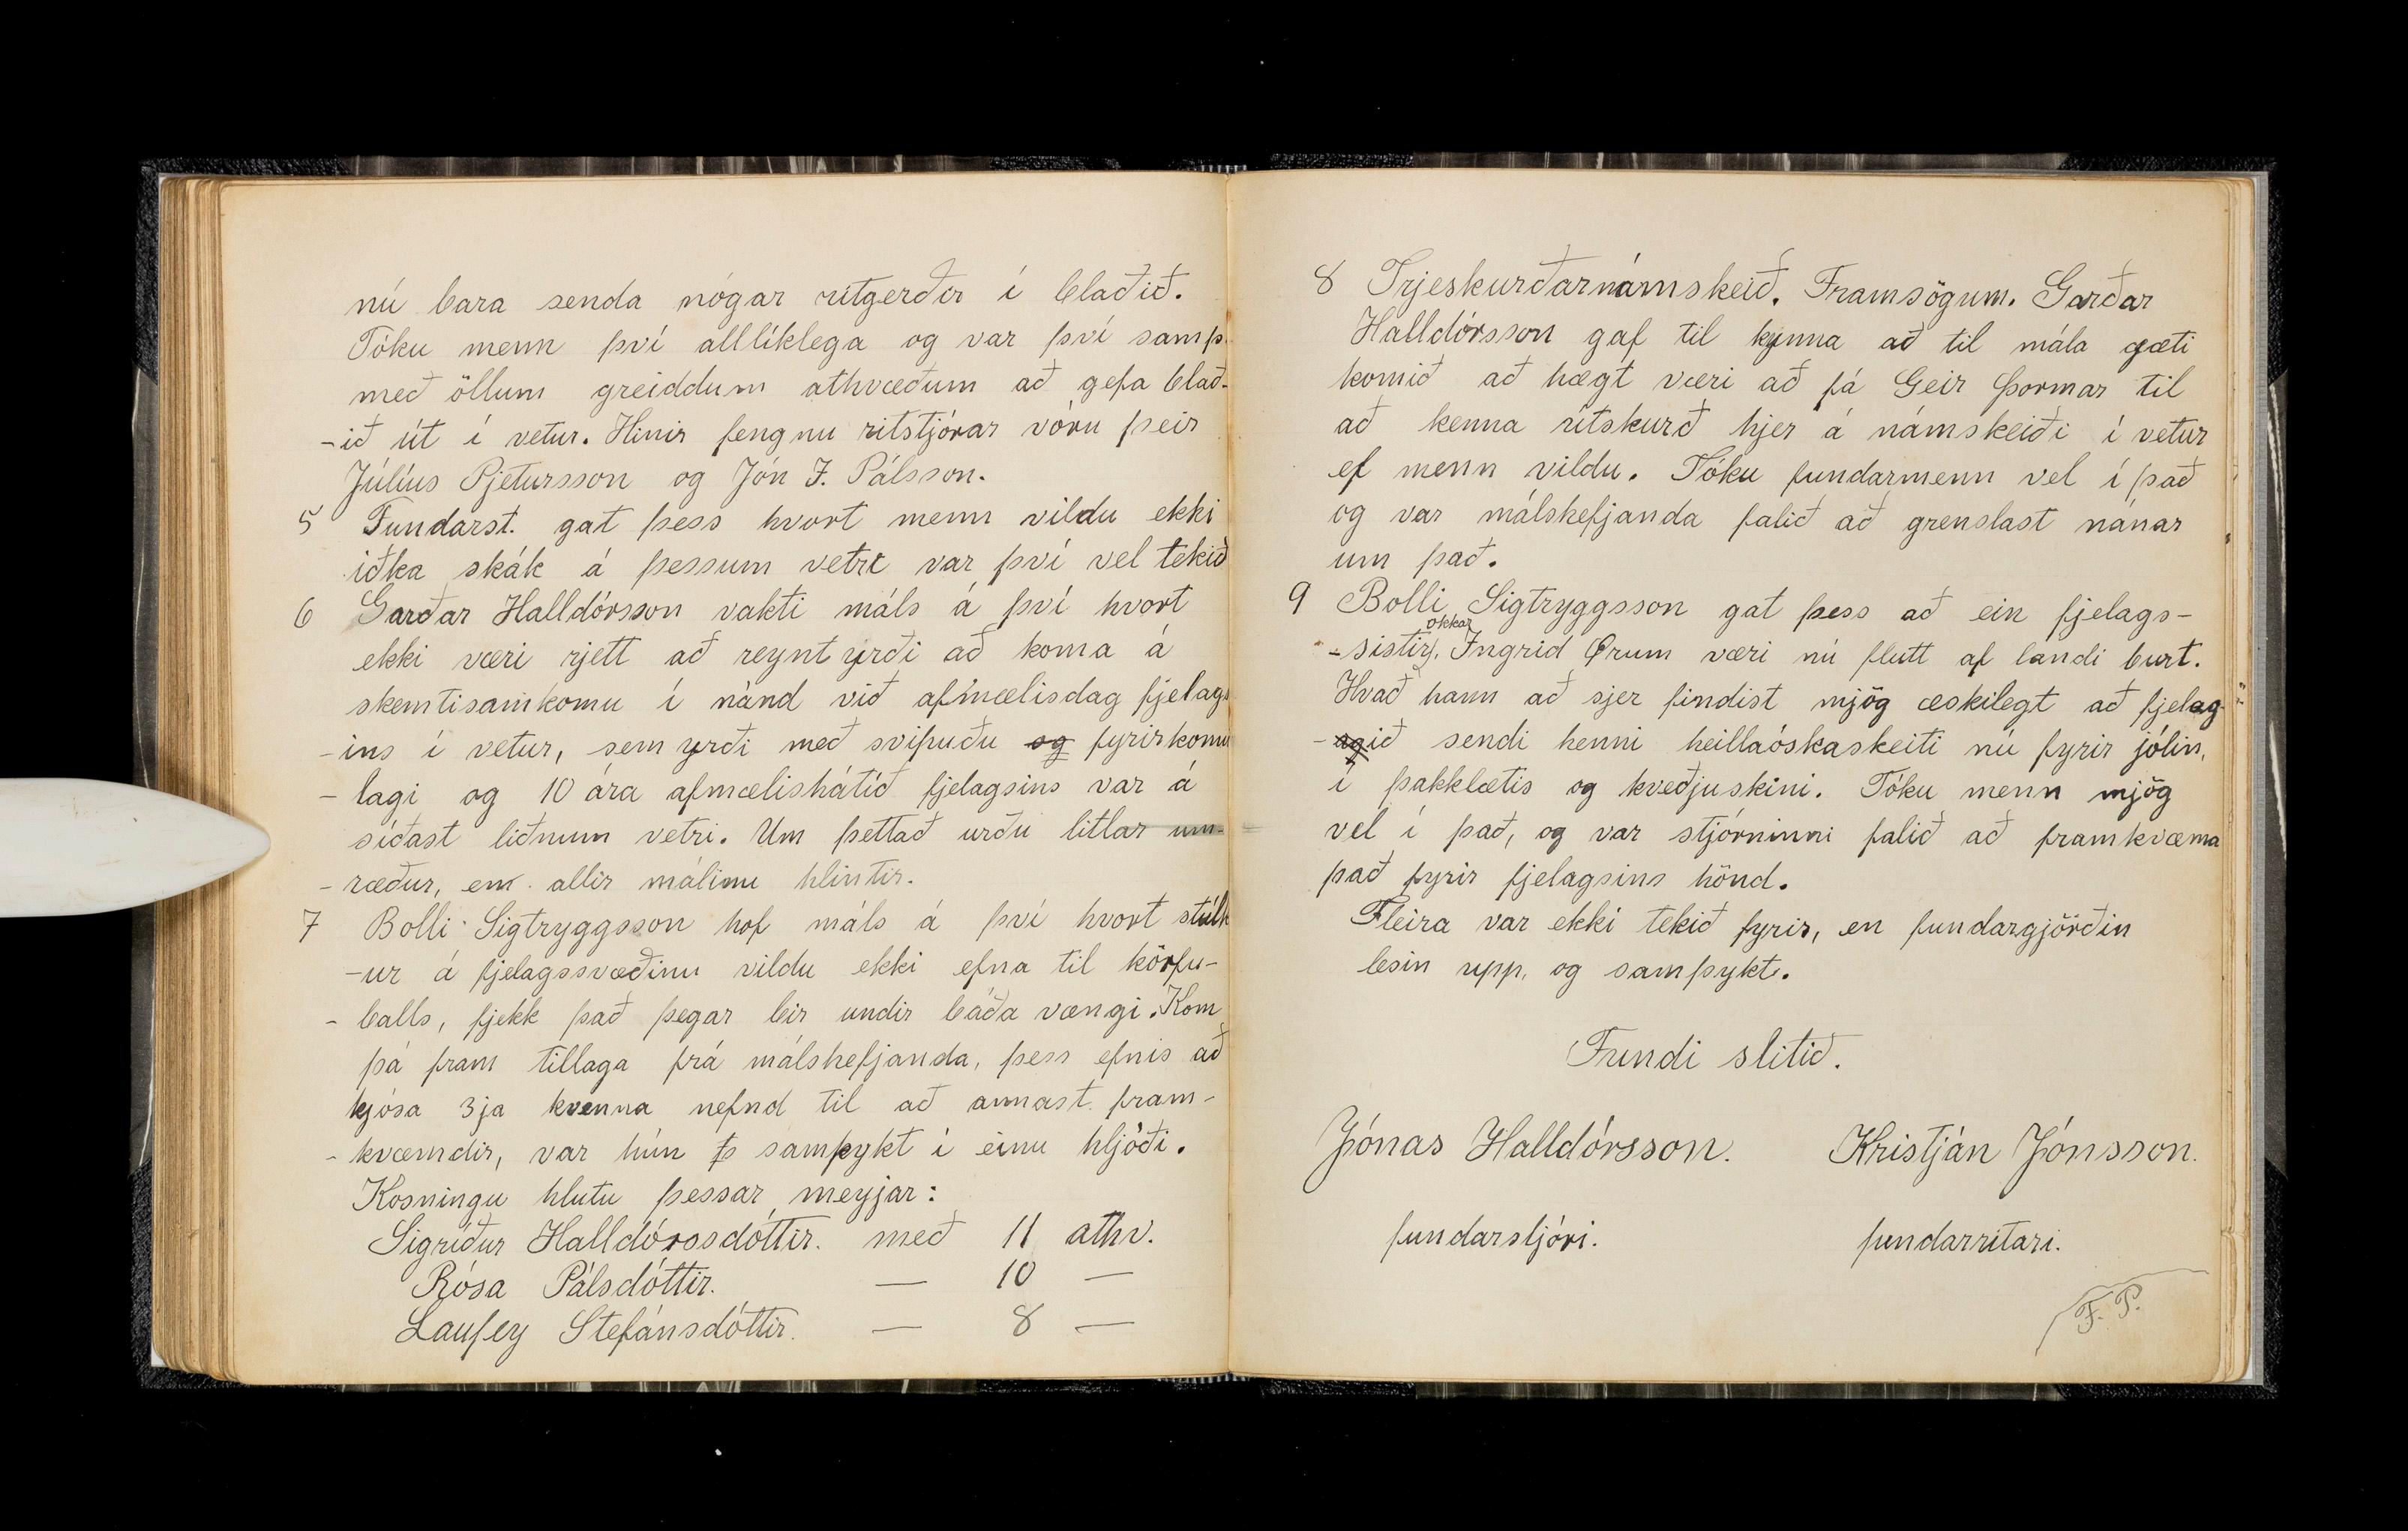 nú bara senda nógar ritgerðir í blaðið.
Tóku menn því alllíklega og var því samþ.
með öllum greiddum athvæðum að gefa blað-
-ið út í vetur. Hinir fengnu ritstjórar vóru þeir
Júlíus Pjetursson og Jón F. Pálsson.
5 Fundarst. gat þess hvort menn vildu ekki
iðka skák á þessum vetri var því vel tekið
6 Garðar Halldórsson vakti máls á því hvort
ekki væri rjett að reynt yrði að koma á
skemtisamkomu í nánd við afmælisdag fjelags
-ins í vetur, sem yrði með svipuðu og fyrirkomu
-lagi og 10 ára afmælishátíð fjelagsins var á
síðast liðnum vetri. Um þettað urðu litlar um-
-ræður, en allir málinu hlintir.
7 Bolli Sigtryggsson hof máls á því hvort stúlk
-ur á fjelagssvæðinu vildu ekki efna til körfu-
-balls, fjekk það þegar bir undir báða vængi. Kom
þá fram tillaga frá málshefjanda, þess efnis að
kjósa 3ja kvenna nefnd til að annast fram-
-kvæmdir, var hún þ samþykt í einu hljóði.
Kosningu hlutu þessar meyjar:
Sigríður Halldórssdóttir. með 11 athv.
Rósa Pálsdóttir. — 10 —
Laufey Stefánsdóttir. — 8 —
8 Trjeskurðarnámskeið. Framsögum. Garðar
Halldórsson gaf til kynna að til mála gæti
komið að hægt væri að fá Geir Þormar til
að kenna útskurð hjer á námskeiði í vetur
ef menn vildu. Tóku fundarmenn vel í það
og var málshefjanda falið að grenslast nánar
um það.
9 Bolli Sigtryggsson gat þess að ein fjelags-
okkar
-sistir, Ingrid Ørum væri nú flutt af landi burt.
Hvað hann að sjer findist mjög æskilegt að fjelag-
-agið sendi henni heillaóskaskeiti nú fyrir jólin,
í þakklætis og kveðjuskini. Tóku menn mjög
vel í það, og var stjórninni falið að framkvæma
það fyrir fjelagsins hönd.
Fleira var ekki tekið fyrir, en fundargjörðin
lesin upp, og samþykt.
Fundi slitið.
Jónas Halldórsson. Kristján Jónsson.
fundarstjóri. fundarritari.
F. P.